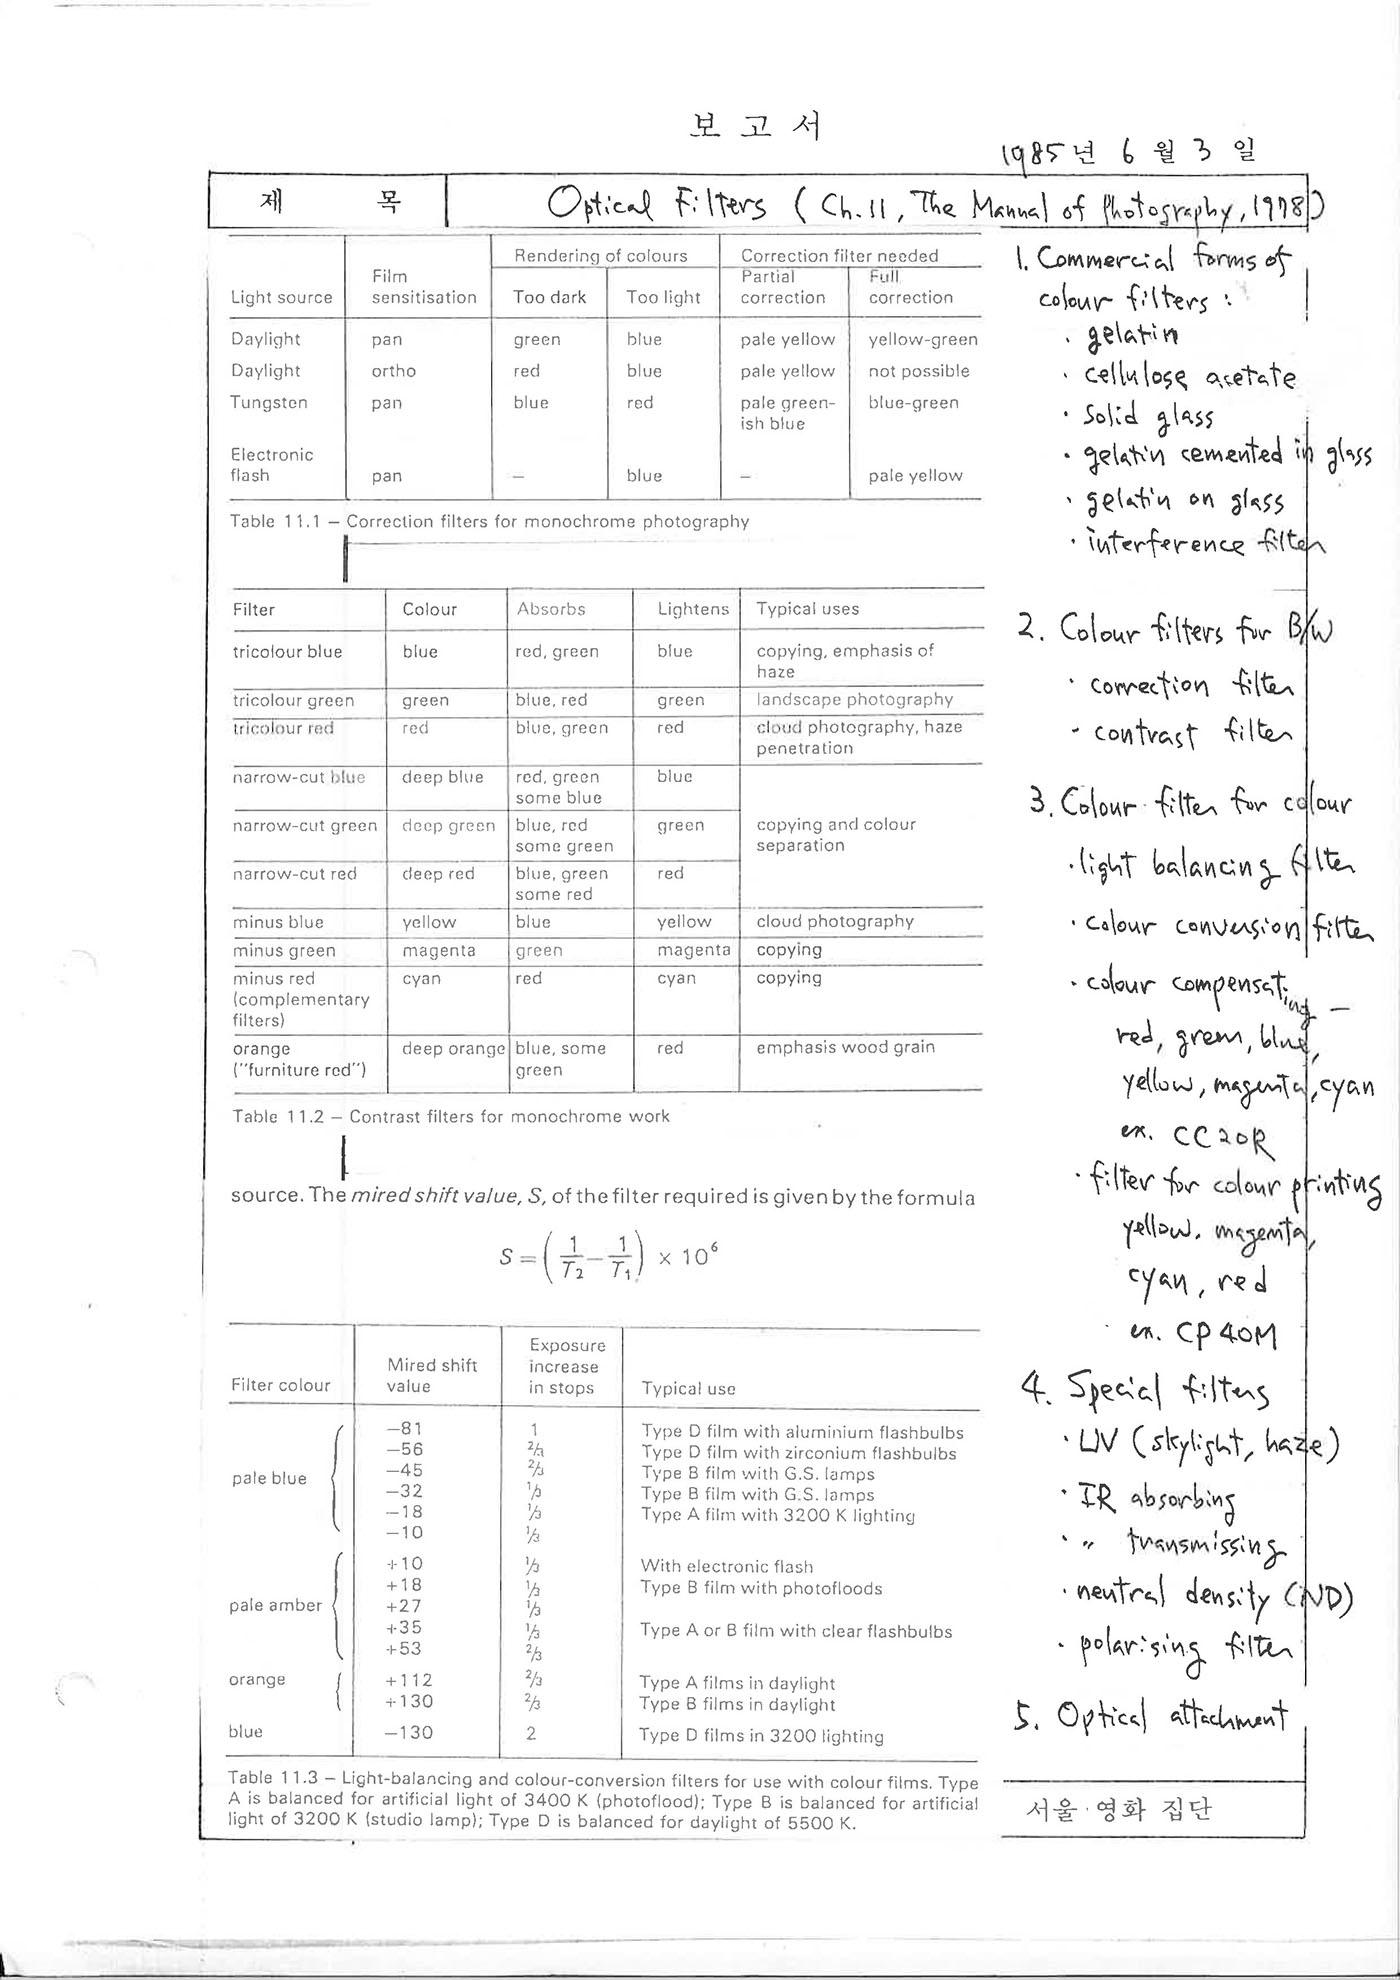 보 고 서
1985년 6 월 3 일
제 목 Optical Filters ( Ch.11, The Manual of Photography, 1978)
Rendering of colours Correction filter needed
Light source Film sensitisation Too dark Too light Partial correction Full correction
Daylight pan green blue pale yellow yellow-green
Daylight ortho red blue pale yellow not possible
Tungsten pan blue red pale green-ish blue blue-green
Electronic flash pan – blue – pale yellow
Table 11.1 – Correction filters for monochrome photography
Filter Colour Absorbs Lightens Typical uses
tricolour blue blue red, green blue copying, emphasis of haze
tricolour green green blue, red green landscape photography
tricolour red red blue, green red cloud photography, haze penetration
narrow-cut blue deep blue red, green some blue blue
narrow-cut green deep green blue, red some green green copying and colour separation
narrow-cut red deep red blue, green some red red
minus blue yellow blue yellow cloud photography
minus green magenta green magenta copying
minus red (complementary filters) cyan red cyan copying
orange ("furniture red") deep orange blue, some green red emphasis wood grain
Table 11.2 – Contrast filters for monochrome work
source. The mired shift value, S, of the filter required is given by the formula
S = ( 1/T₂ – 1/T₁ ) × 10⁶
Filter colour Mired shift value Exposure increase in stops Typical use
pale blue
–81 1 Type D film with aluminium flashbulbs
–56 ⅔ Type D film with zirconium flashbulbs
–45 ⅔ Type B film with G.S. lamps
–32 ⅓ Type B film with G.S. lamps
–18 ⅓ Type A film with 3200 K lighting
–10 ⅓
pale amber
+10 ⅓ With electronic flash
+18 ⅓ Type B film with photofloods
+27 ⅓
+35 ⅓ Type A or B film with clear flashbulbs
+53 ⅔
orange
+112 ⅔ Type A films in daylight
+130 ⅔ Type B films in daylight
blue –130 2 Type D films in 3200 lighting
Table 11.3 – Light-balancing and colour-conversion filters for use with colour films. Type
A is balanced for artificial light of 3400 K (photoflood); Type B is balanced for artificial
light of 3200 K (studio lamp); Type D is balanced for daylight of 5500 K.
1. Commercial forms of
colour filters :
· gelatin
· cellulose acetate
· solid glass
· gelatin cemented in glass
· gelatin on glass
· interference filter
2. Colour filters for B/W
· correction filter
- contrast filter
3. Colour filter for colour
· light balancing filter
· colour conversion filter
· colour compensating –
red, green, blue,
yellow, magenta, cyan
ex. CC20R
· filter for colour printing
yellow, magenta,
cyan, red
ex. CP40M
4. Special filters
· UV (skylight, haze)
· IR absorbing
· 〃 transmissing
· neutral density (ND)
· polarising filter
5. Optical attachment
서울·영화 집단